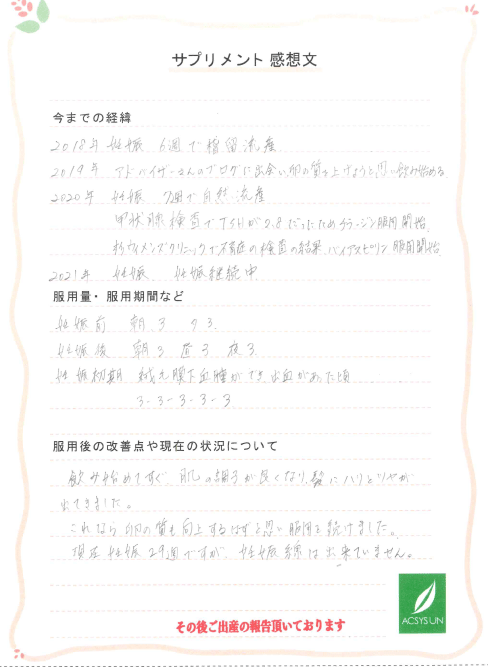 サプリメント 感想文
今までの経緯
2018年 妊娠 6週で稽留流産
2019年 アドバイザーさんのブログに出会い卵の質を上げようと思い飲み始める
2020年 妊娠 7週で自然流産
甲状腺検査でTSHが2.8だったためチラージン服用開始
杉ウィメンズクリニックで不育症の検査の結果、バイアスピリン服用開始
2021年 妊娠 妊娠継続中
服用量・服用期間など
妊娠前 朝3 夕3
妊娠後 朝3 昼3 夜3
妊娠初期 絨毛膜下血腫ができ出血があった頃
3-3-3-3-3
服用後の改善点や現在の状況について
飲み始めてすぐ、肌の調子が良くなり、髪にハリとツヤが
出てきました。
これなら卵の質も向上するはずと思い服用を続けました。
現在妊娠29週ですが、妊娠線は出来ていません。
ACSYSUN
その後ご出産の報告頂いております